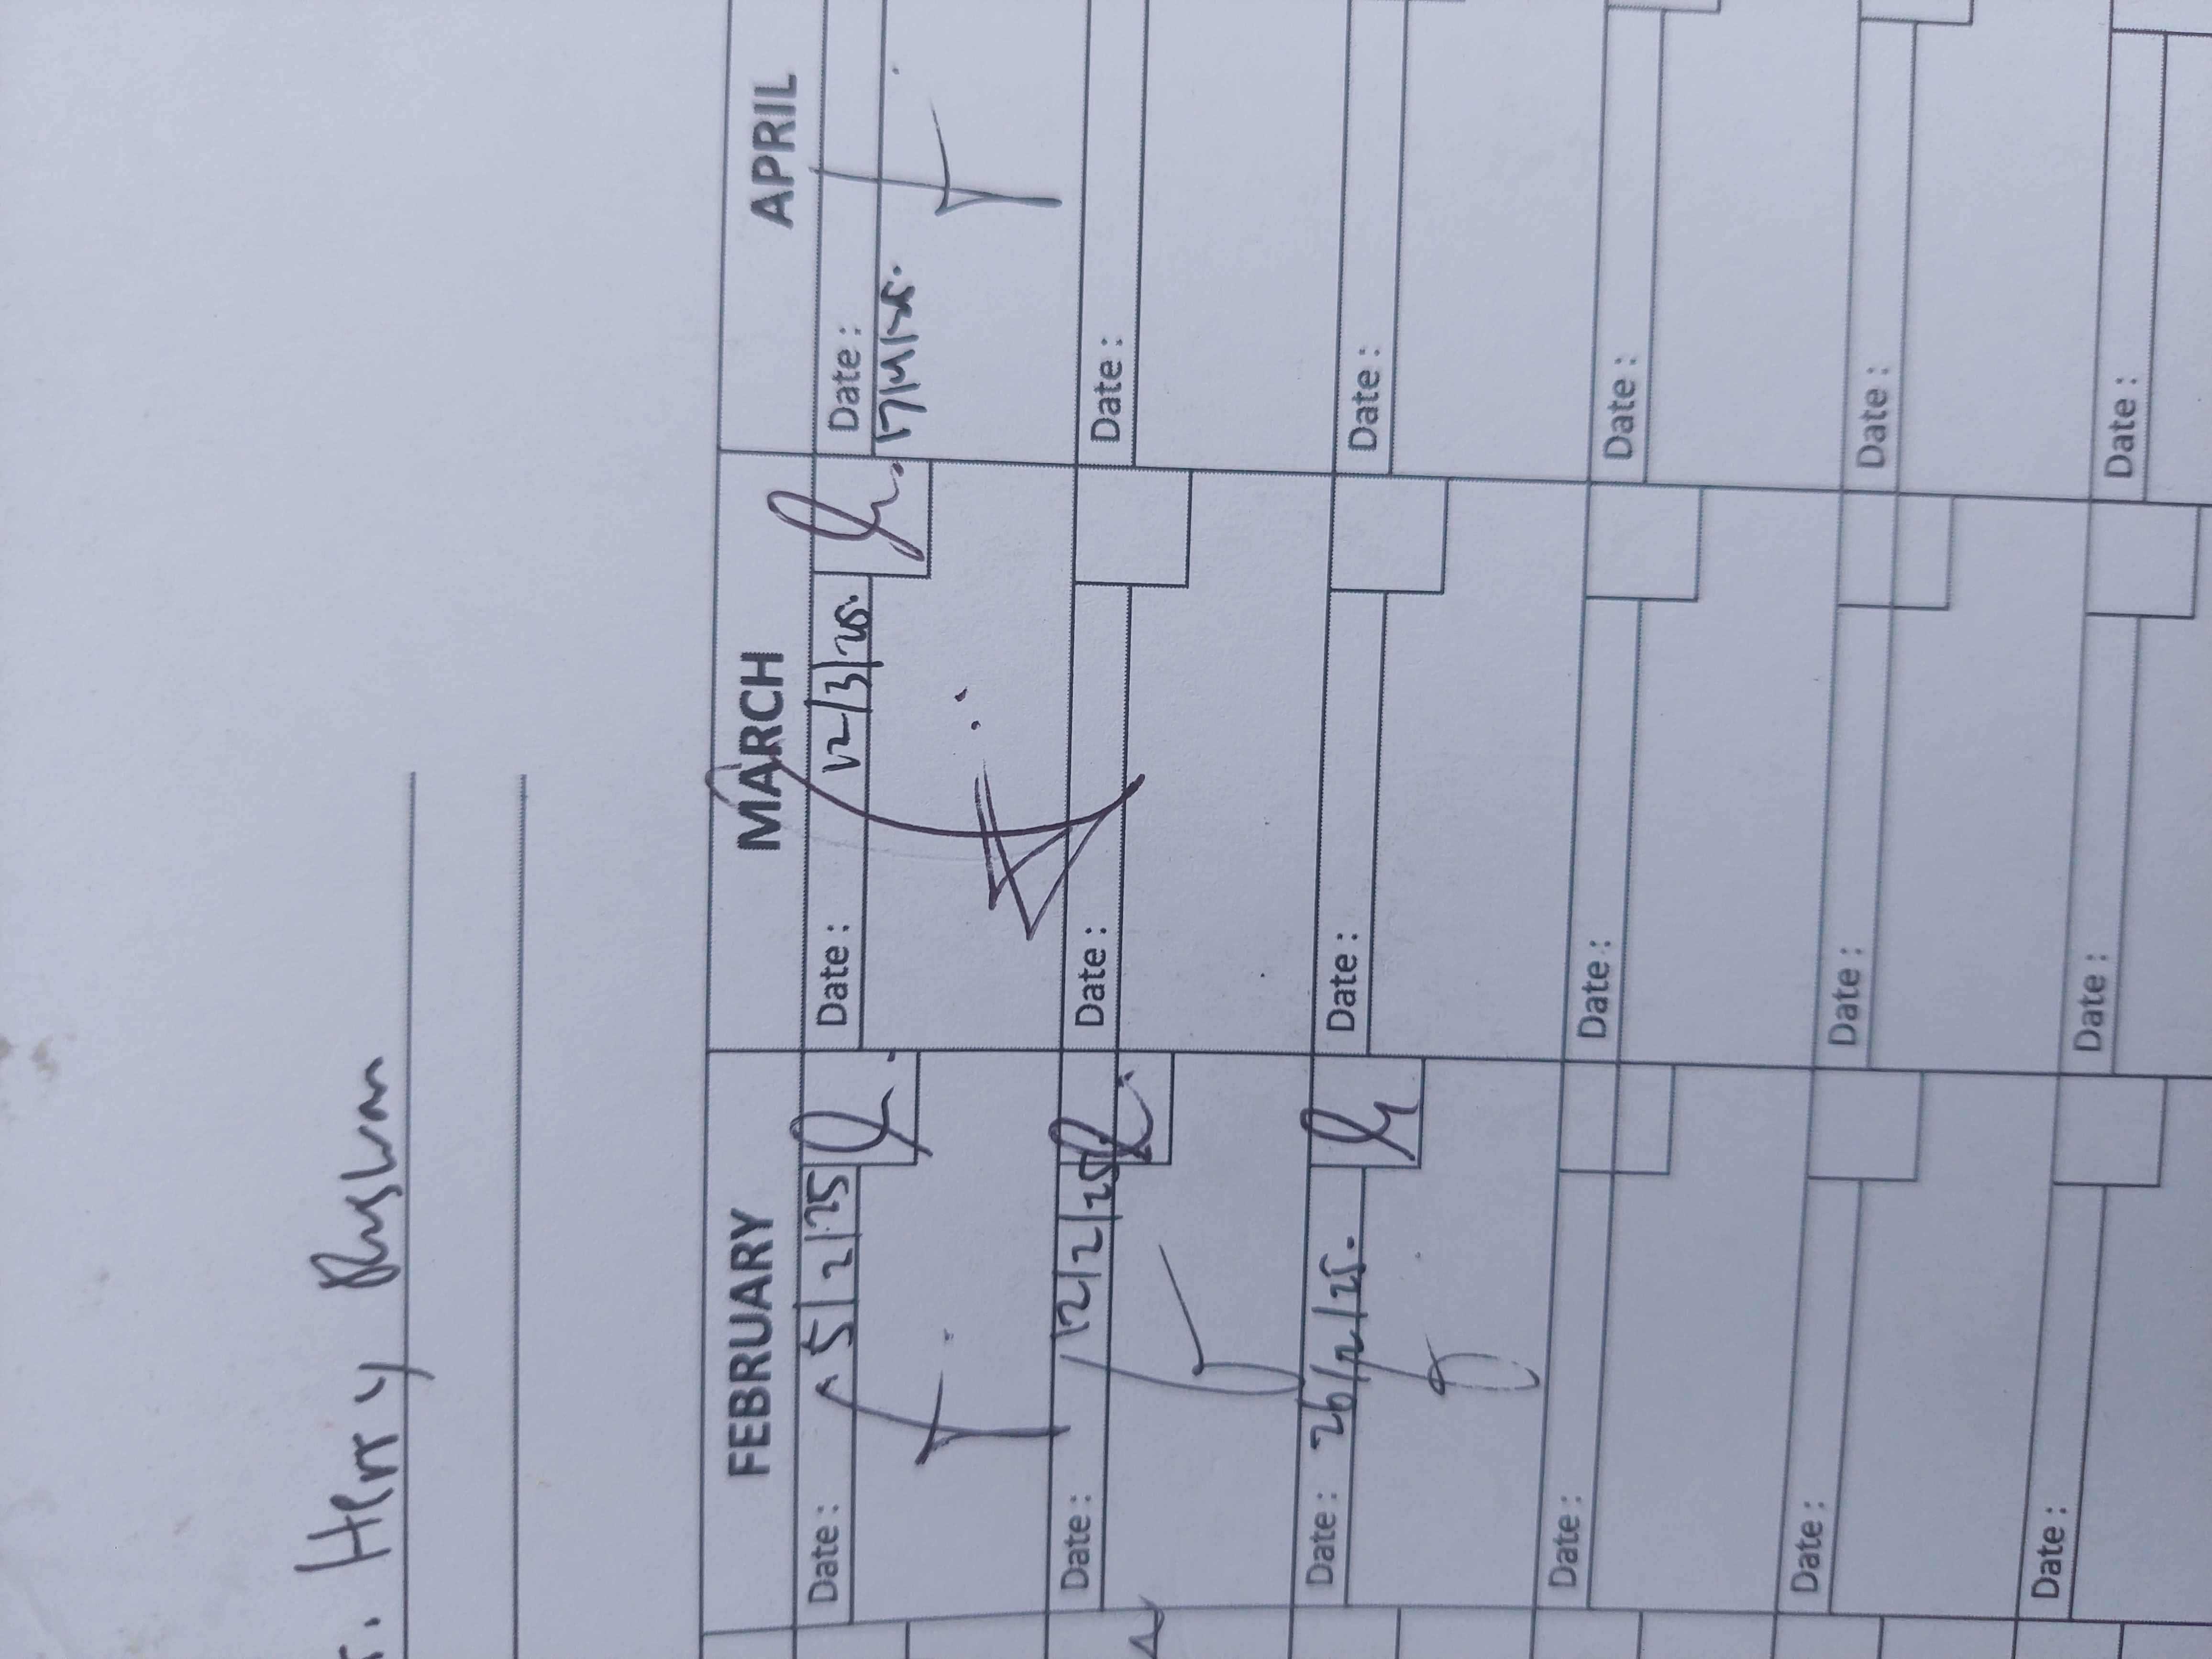 r. Henry
FEBRUARY MARCH APRIL
Date: 5/2/25 Date: 12/3/25. Date:
17/4/25.
Date: 12/2/25 Date: Date:
Date: 26/2/25. Date: Date:
Date: Date: Date:
Date: Date: Date:
Date: Date: Date: